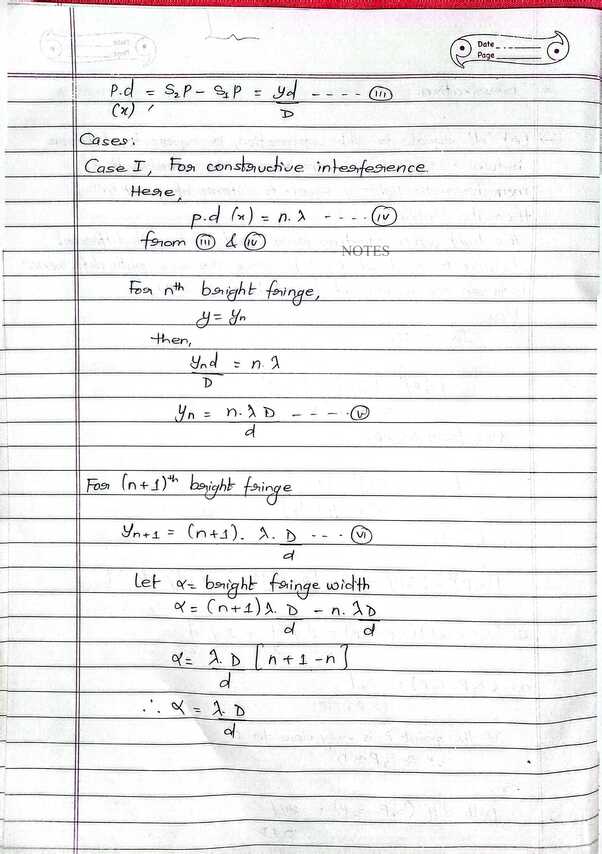 Date
Page
p.d = S₂P - S₁P = yd/D ---- (III)
(x)
Cases:
Case I, For constructive interference.
Here,
p.d (x) = n.λ ---- (IV)
from (III) & (IV)
NOTES
For nth bright fringe,
y = yₙ
then,
yₙd/D = n.λ
yₙ = n.λD/d ---- (V)
For (n+1)th bright fringe
yₙ₊₁ = (n+1). λ.D/d --- (VI)
Let α = bright fringe width
α = (n+1)λ.D/d - n.λD/d
α = λ.D/d [n+1-n]
∴ α = λ.D/d